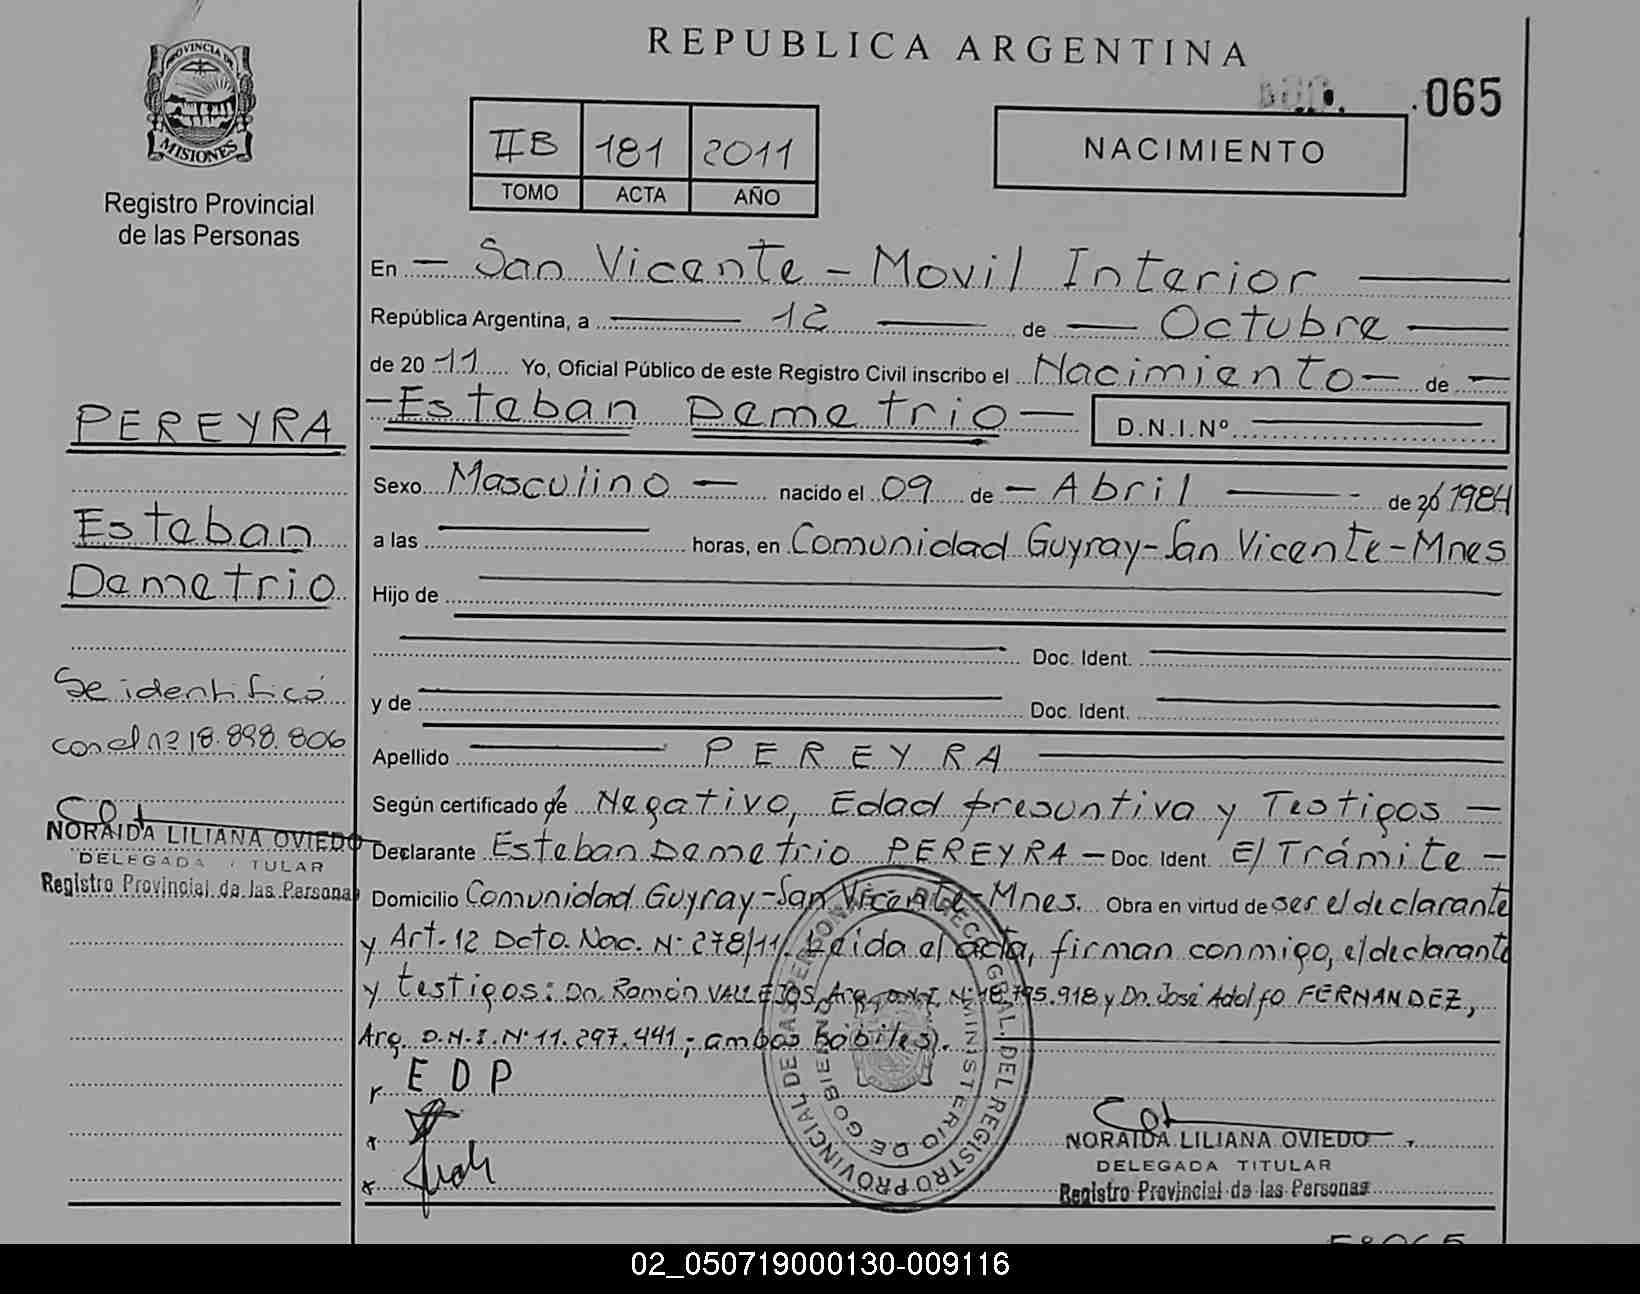 REPUBLICA ARGENTINA
065
PROVINCIA DE
MISIONES
Registro Provincial
de las Personas
IIB 181 2011
TOMO ACTA AÑO
NACIMIENTO
En — San Vicente – Movil Interior —
República Argentina, a — 12 — de — Octubre —
de 20 11 Yo, Oficial Público de este Registro Civil inscribo el Nacimiento — de —
– Esteban Demetrio — D.N.I.Nº —
Sexo Masculino — nacido el 09 de – Abril — de 20 1984
a las — horas, en Comunidad Guyray-San Vicente-Mnes
Hijo de —
Doc. Ident. —
y de — Doc. Ident. —
Apellido — PEREYRA —
Según certificado de Negativo, Edad presuntiva y Testigos —
Declarante Esteban Demetrio PEREYRA – Doc. Ident. E/ Trámite –
Domicilio Comunidad Guyray-San Vicente-Mnes. Obra en virtud de ser el declarante
y Art. 12 Dcto. Nac. Nº 278/11. Leida el acta, firman conmigo, el declarante
y testigos: Dn. Ramón VALLEJOS, Arg. D.N.I. Nº 18.795.918 y Dn. José Adolfo FERNANDEZ,
Arg. D.N.I. Nº 11.297.441; ambos hábiles).
E D P
NORAIDA LILIANA OVIEDO
DELEGADA TITULAR
Registro Provincial de las Personas
PEREYRA
Esteban
Demetrio
Se identificó
con el nº 18.898.806
NORAIDA LILIANA OVIEDO
DELEGADA TITULAR
Registro Provincial de las Personas
02_050719000130-009116